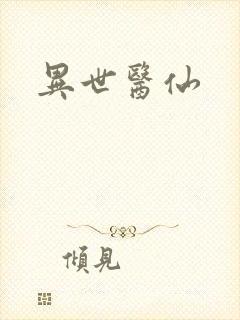 異世醫仙
傾見